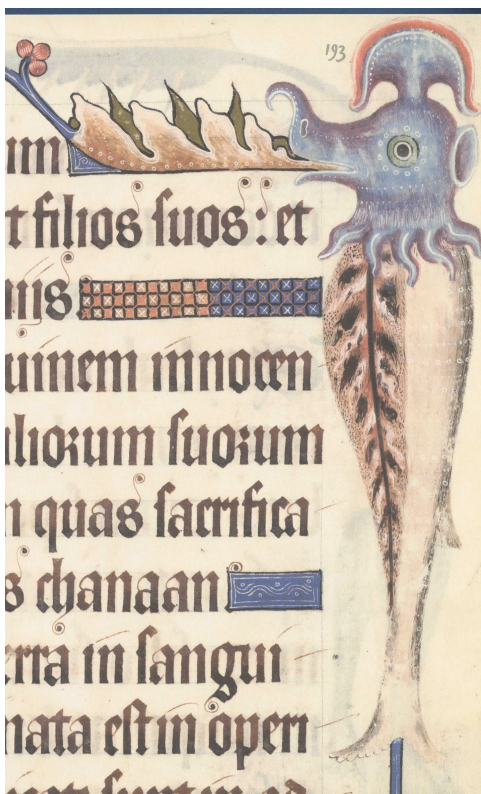 193
um
t filios suos: et
iis
uinem innocen
liorum suorum
quas sacrifica
s chanaan
rra in sangui
nata est in operi